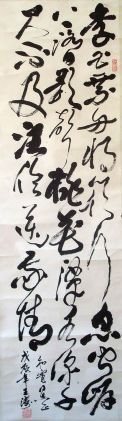 李白乘舟将欲行忽闻岸
上踏歌声桃花潭水深千
尺不及汪伦送我情
戊辰年